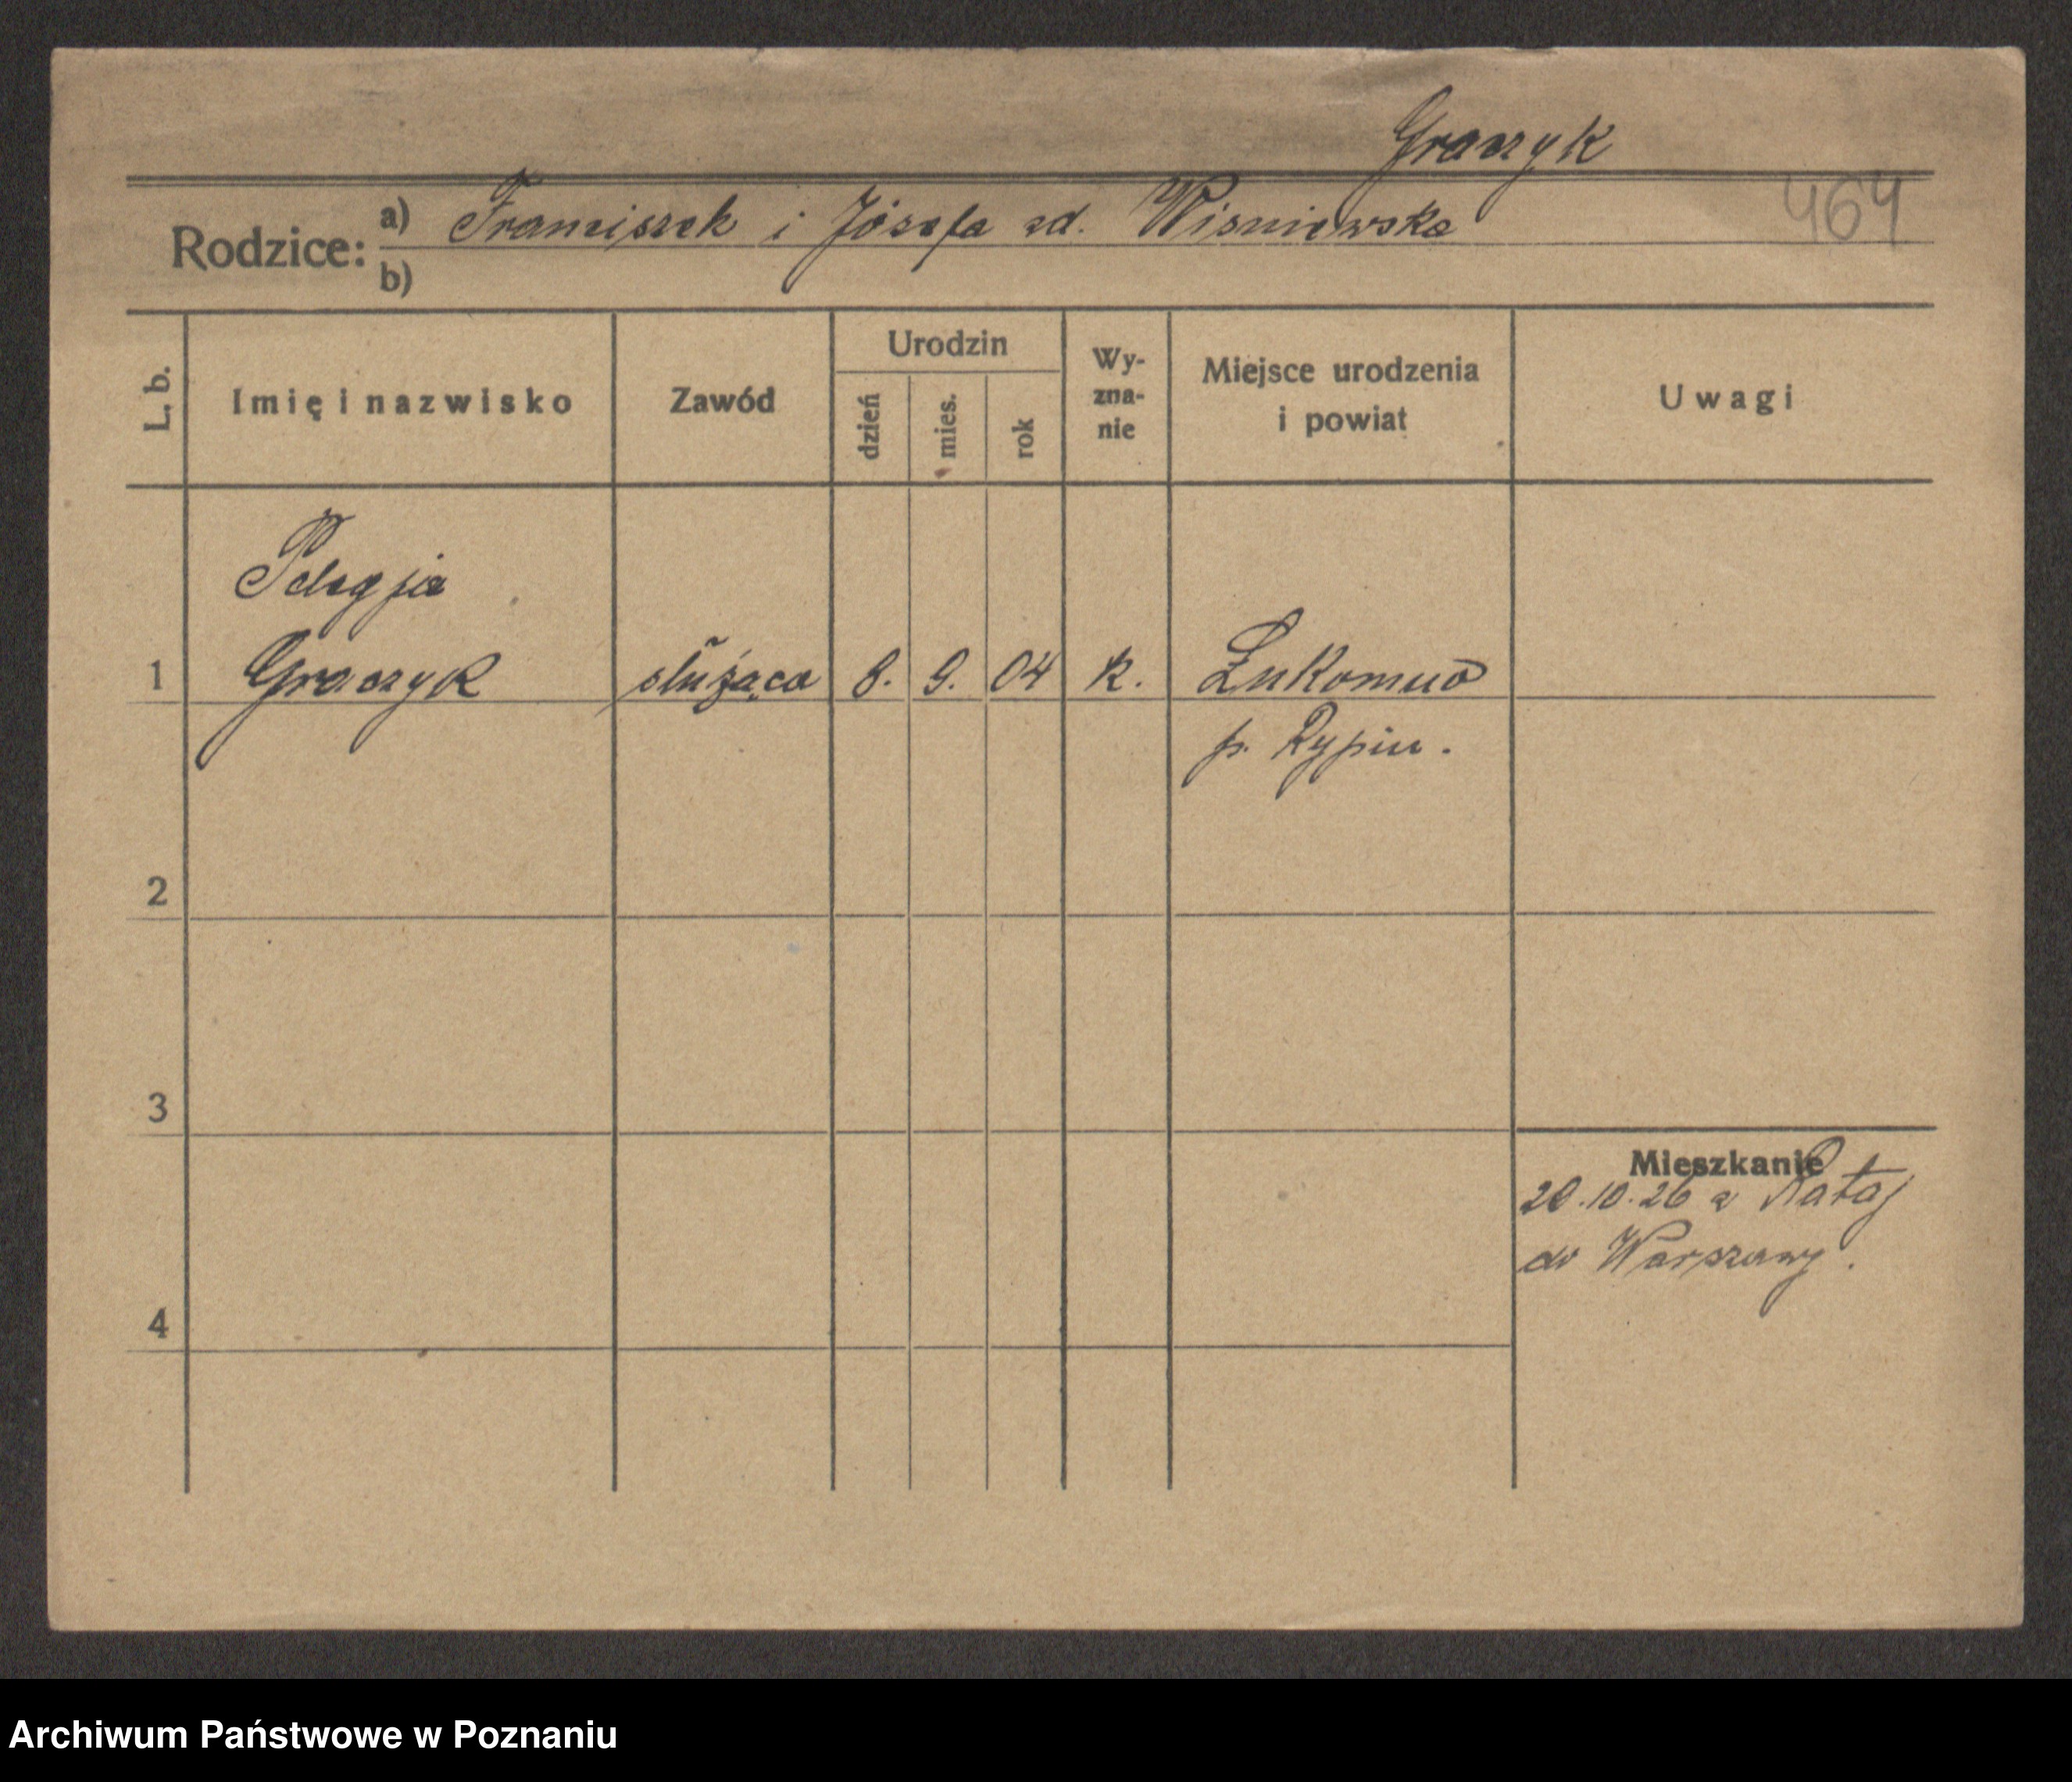 Graczyk
464
Rodzice: a) Franciszek i Józefa zd. Wisniewska
b)
L. b.
Imię i nazwisko
Zawód
Urodzin
dzień
mies.
rok
Wy-
zna-
nie
Miejsce urodzenia
i powiat
Uwagi
Pelagja
1 Graczyk służąca 8. 9. 04 k. Łukomno
p. Rypin.
2
3
Mieszkanie
20.10.26 z Rataj
do Warszawy.
4
Archiwum Państwowe w Poznaniu